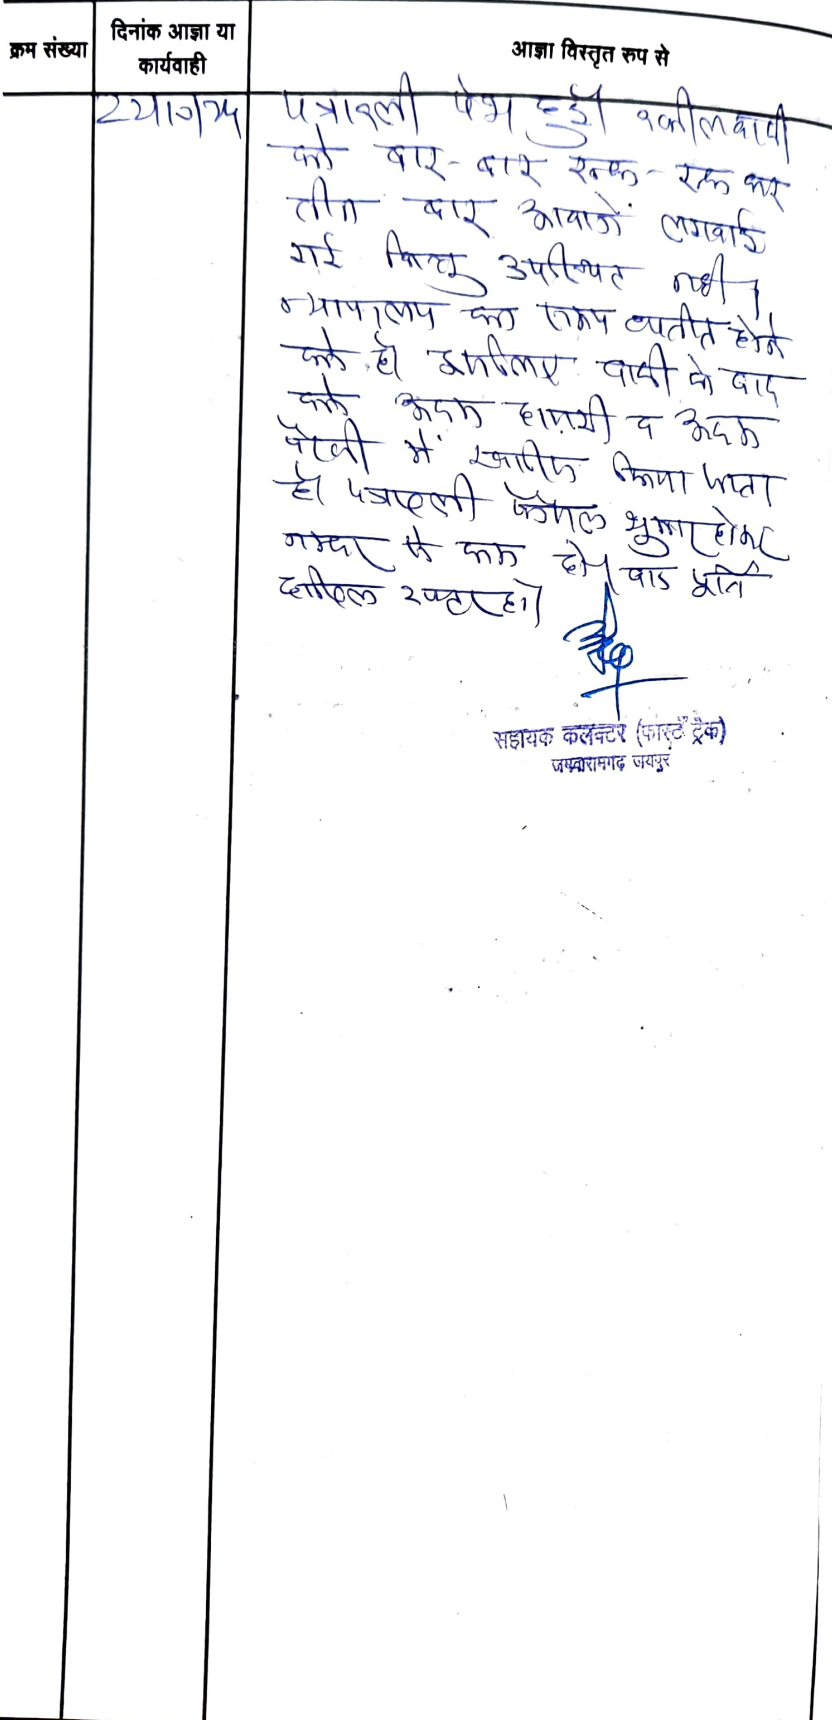 क्रम संख्या
दिनांक आज्ञा या
कार्यवाही
आज्ञा विस्तृत रूप से
पत्रावली पेश हुई। वकील वादी
को बार-बार रूक-रूक कर
तीन बार आवाजें लगवाई
गई किन्तु उपस्थित नहीं।
न्यायालय का समय व्यतीत होने
को है। इसलिए वादी के वाद
को अदम हाजरी व अदम
पैरवी में खारिज किया जाता
है। पत्रावली फैसल शुमार होकर
नम्बर से कम हो। वाद पूर्ति
दाखिल दफ्तर हो।
सहायक कलक्टर (फास्ट ट्रेक)
जमवारामगढ़ जयपुर